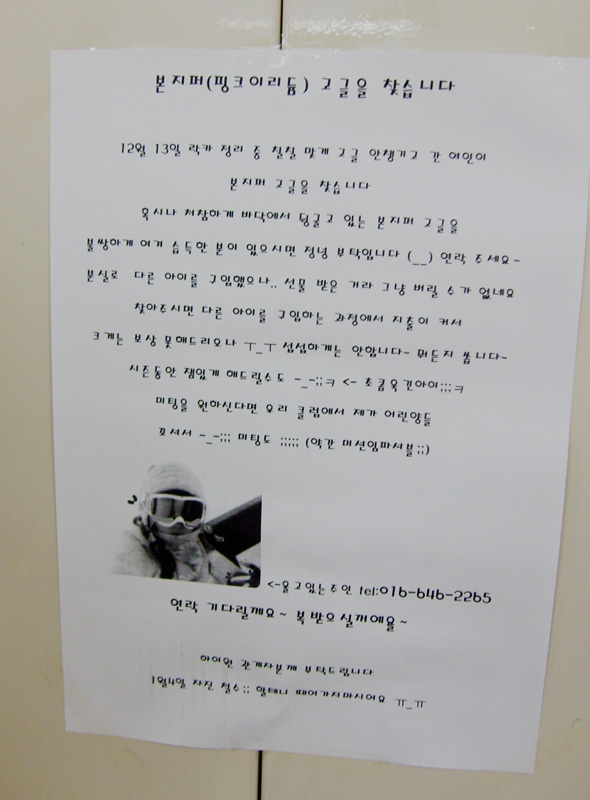 본지퍼(핑크이리듐) 고글을 찾습니다
12월 13일 락카 정리 중 칠칠 맞게 고글 안챙기고 간 여인이
본지퍼 고글을 찾습니다
혹시나 처참하게 바닥에서 뒹굴고 있는 본지퍼 고글을
불쌍하게 여겨 습득한 분이 있으시면 정녕 부탁입니다 (__) 연락 주세요~
분실로 다른 아이를 구입했으나.. 선물 받은 거라 그냥 버릴 수가 없네요
찾아주시면 다른 아이를 구입하는 과정에서 지출이 커서
크게는 보상 못해드리오나 ㅜ_ㅜ 섭섭하게는 안합니다~ 뭐든지 쏩니다~
시즌동안 잼있게 해드릴수도 -_-;;ㅋ <- 초큼웃긴아이;;;ㅋ
미팅을 원하신다면 우리 클럽에서 제가 어린양들
꼬셔서 -_-;;; 미팅도 ;;;;; (약간 미션임파셔블;;)
<-울고있는주인 tel:016-646-2265
연락 기다릴께요~ 복받으실꺼에욜~
하이원 관계자분께 부탁드립니다
1월4일 자진 철수;; 할테니 떼어가지마시어요 ㅠ_ㅠ